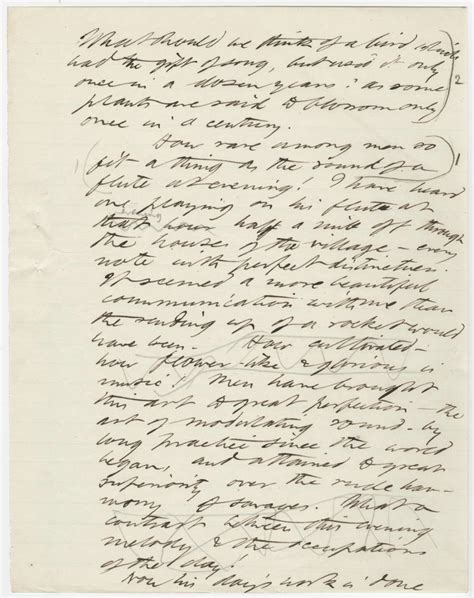 What should we think of a bird which
had the gift of song, but used it only
once in a dozen years! as some
plants are said to blossom only
once in a century.
2
How rare among men so
fit a thing as the sound of a
flute at evening! I have heard
1
one playing on his flute at
evening
that hour half a mile off through
the houses of the village – every
note with perfect distinctness.
It seemed a more beautiful
communication with me than
the sending up of a rocket would
have been. How cultivated –
how flower-like & glorious is
music! Men have brought
this art to great perfection – the
art of modulating sound – by
long practice since the world
began, and attained to great
superiority over the rude har-
mony of savages. What a
contrast between this evening
melody & the occupations
of the day!
Now his day's work is done